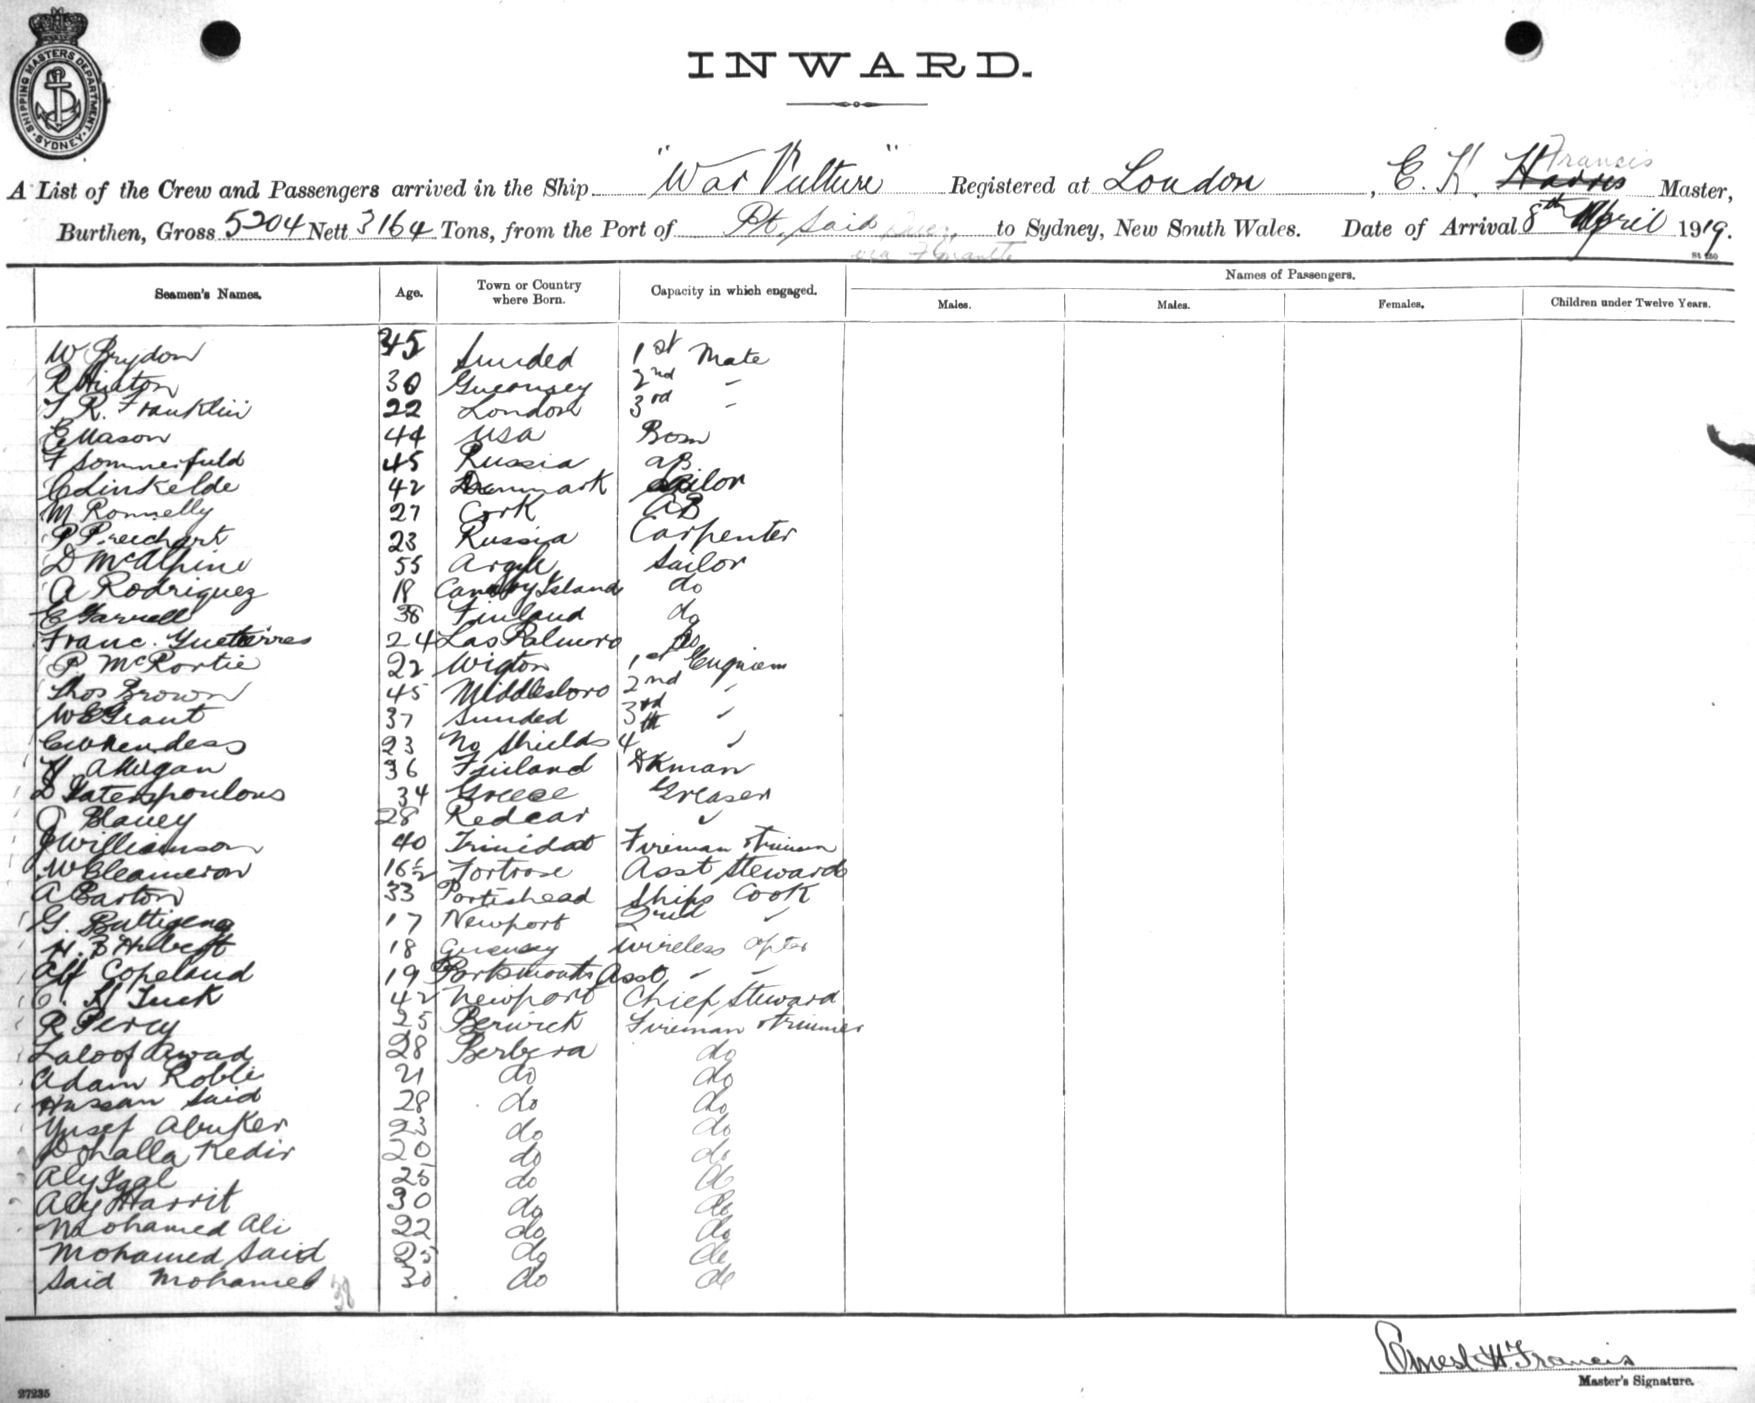 SHIPPING MASTERS DEPARTMENT. SYDNEY.
INWARD.
A List of the Crew and Passengers arrived in the Ship "War Vulture" Registered at London, E. H. Harris Francis Master,
Burthen, Gross 5204 Nett 3164 Tons, from the Port of Pt. Said to Sydney, New South Wales. Date of Arrival 8th April 1919.
via
Seamen's Names. Age. Town or Country where Born. Capacity in which engaged. Names of Passengers.
Males. Males. Females. Children under Twelve Years.
W Brydon 45 Sunded 1st Mate
R Hinton 30 Guernsey 2nd "
T. R. Franklin 22 London 3rd "
C Mason 44 USA Bosn
F Sommerfuld 45 Russia AB
C Linkelde 42 Denmark Sailor
M Ronnelly 27 Cork AB
P Preichart 23 Russia Carpenter
D McAlpine 55 Argyle Sailor
A Rodriguez 18 Canary Island do
E 38 Finland do
Franc. 24 Las Palmoro do
P McRortie 22 Wigton 1st Engineer
Thos Brown 45 Middlesboro 2nd "
W E Grant 37 Sunded 3rd "
23 No Shields 4th "
36 Finland Dkman
34 Greece Greaser
J Blaney 28 Redcar "
J Williamson 40 Trinidad Fireman & Trimmer
W Cleameron 16½ Fortrose Asst Steward
A Barton 33 Portishead Ships Cook
G. Buttigeng 17 Newport 2nd "
H. B 18 Guernsey Wireless opter
Alf Copeland 19 Portsmouth Asst " "
C. H Tuck 42 Newport Chief Steward
R Percy 25 Berwick Fireman & Trimmer
Laloof Awad 28 Berbera do
Adam Roble 21 do do
Hassan Said 28 do do
Yusef Abuker 23 do do
Dohalla Kedir 20 do do
Aly Igal 25 do do
Aly Harrit 30 do do
Mohamed Ali 22 do do
Mohamed Said 25 do do
Said Mohamed 30 do do
38
Ernest H. Francis
Master's Signature.
27235